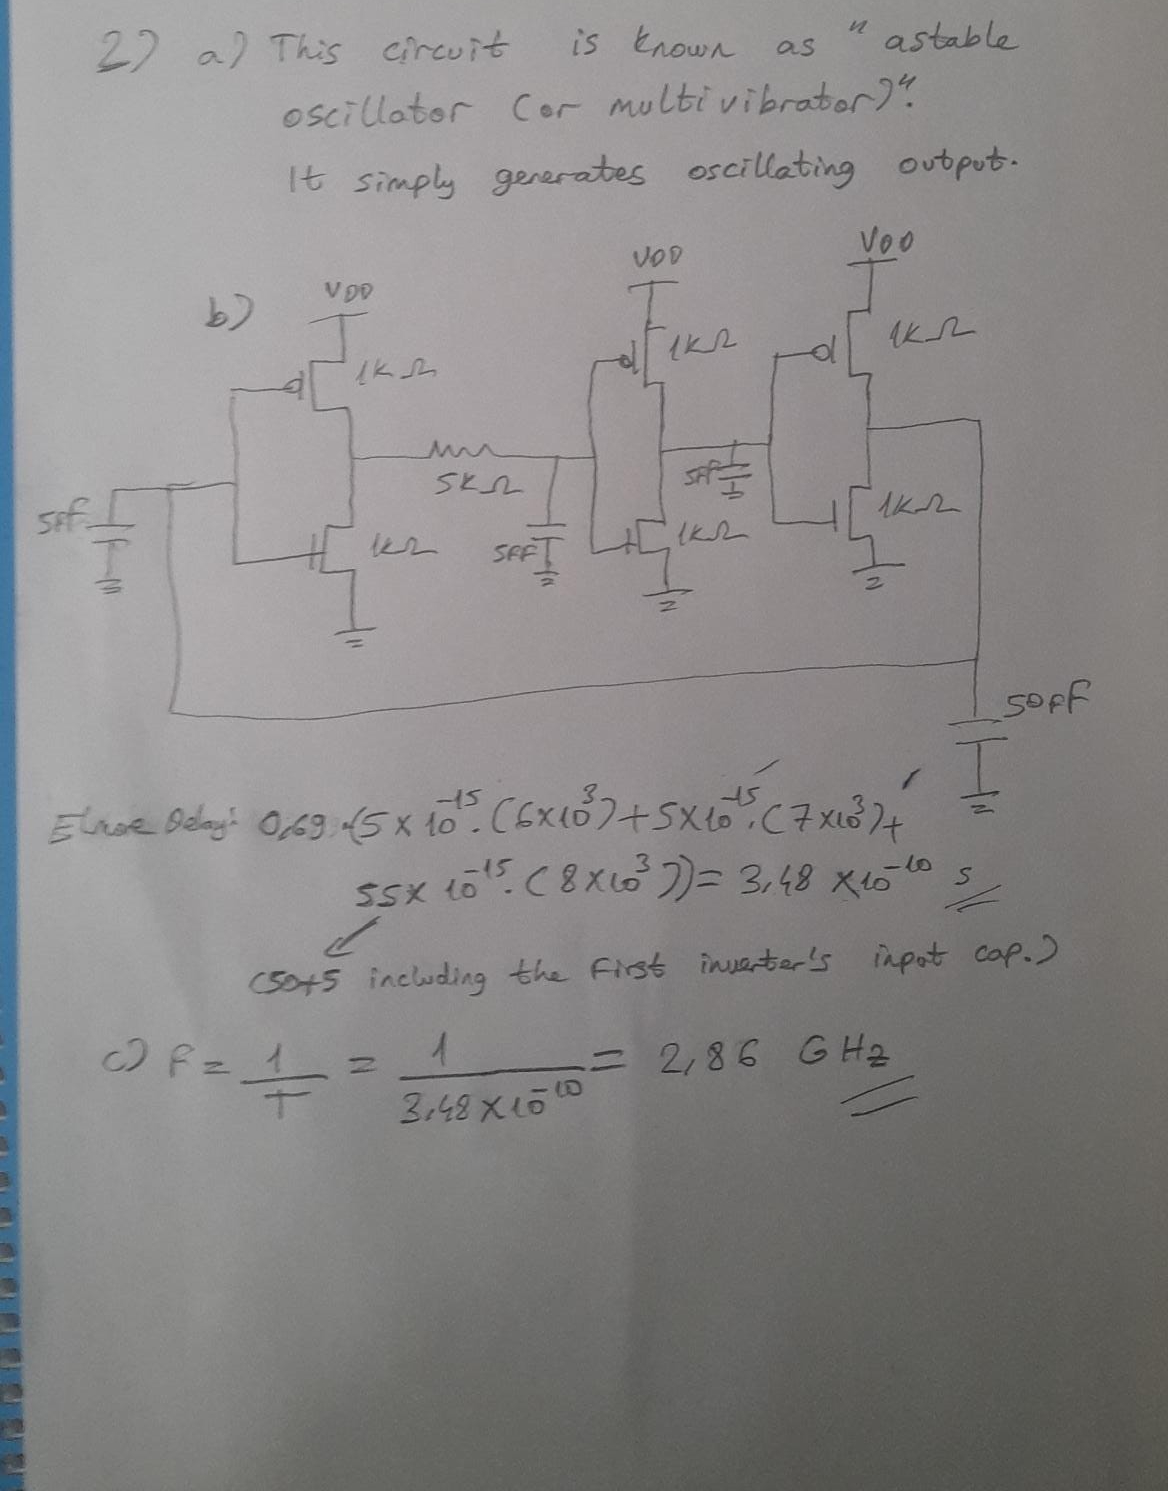 2) a) This circuit is known as "astable
oscillator (or multivibrator)".
It simply generates oscillating output.
b)
VDD
VDD
VDD
1kΩ
1kΩ
1kΩ
5kΩ
5fF
5fF
5fF
1kΩ
1kΩ
1kΩ
50fF
Delay: 0,69.(5x10^-15.(6x10^3)+5x10^-15.(7x10^3)+
55x10^-15.(8x10^3))= 3,48 x10^-10 s
(50+5 including the first inverter's input cap.)
c) f = 1/T = 1/3,48x10^-10 = 2,86 GHz